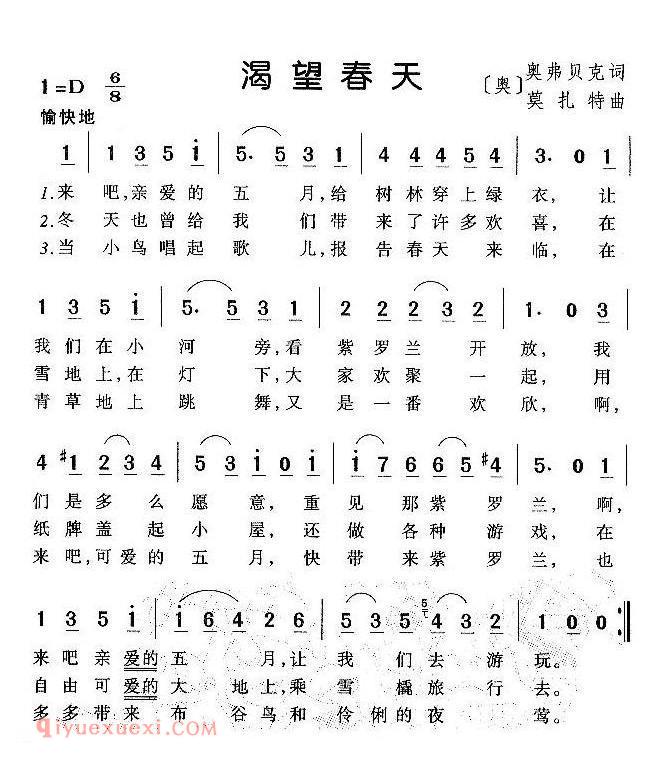 渴望春天
1=D 6/8
〔奥〕奥弗贝克词
莫扎特曲
愉快地
1 | 1 3 5 i | 5. 5 5 3 1 | 4 4 4 5 4 | 3. 0 1 |
1.来 吧,亲爱的 五 月,给 树林穿上绿 衣,让
2.冬 天也曾给 我 们带 来了许多欢 喜,在
3.当 小鸟唱起 歌 儿,报 告春天 来 临,在
1 3 5 i | 5. 5 5 3 1 | 2 2 2 3 2 | 1. 0 3 |
我们在小 河 旁,看 紫罗兰 开 放,我
雪地上,在 灯 下,大 家欢聚 一 起,用
青草地上 跳 舞,又 是一番 欢 欣,啊,
4 #1 2 3 4 | 5 3 i 0 i | i 7 6 6 5 #4 | 5. 0 1 |
们是多么 愿 意,重 见那紫 罗 兰,啊,
纸牌盖起 小 屋,还 做各种 游 戏,在
来吧,可爱的 五 月,快 带来紫 罗 兰,也
1 3 5 i | i 6 4 2 6 | 5 3 5 5 4 3 2 | 1 0 0 :|
来吧亲爱的 五 月,让 我们去 游 玩。
自由可爱的 大 地上,乘 雪橇旅 行 去。
多多带来 布 谷鸟和 伶俐的夜 莺。
qiyuexuexi.com